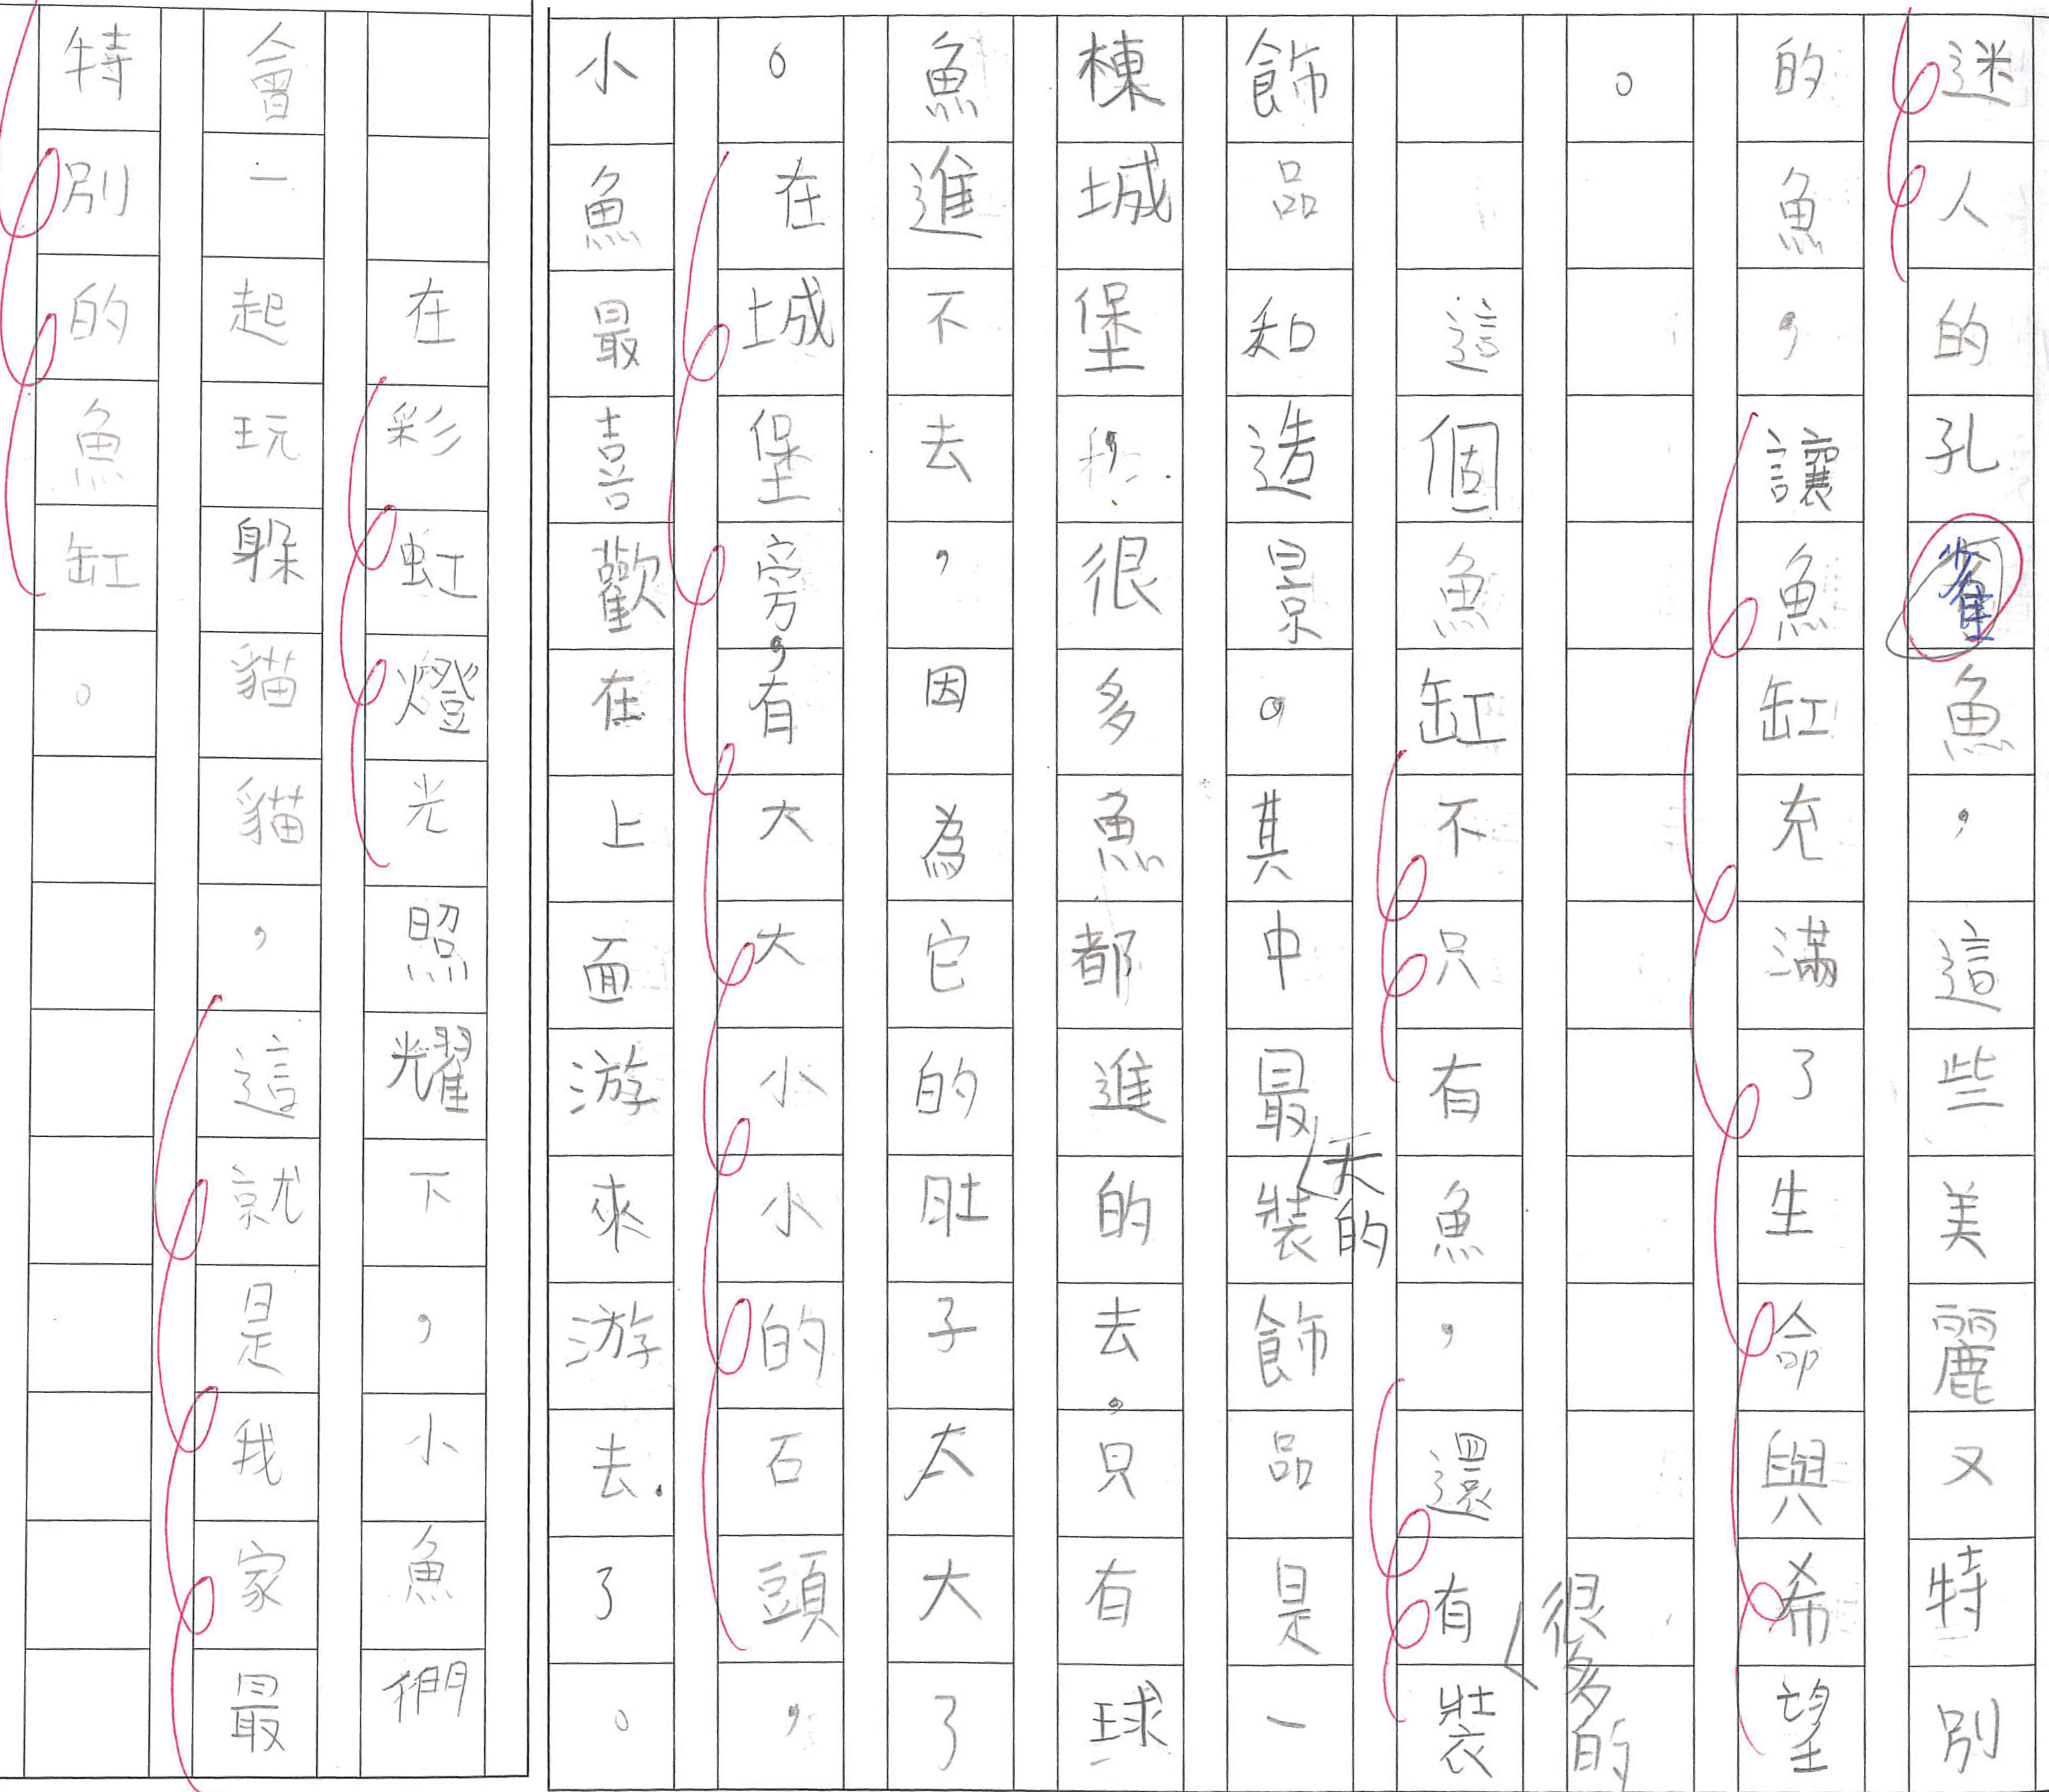 迷人的孔雀魚，這些美麗又特別
的魚，讓魚缸充滿了生命與希望
。
這個魚缸不只有魚，還有很多的裝
飾品和造景。其中最大的裝飾品是一
棟城堡，很多魚都進的去，只有球
魚進不去，因為它的肚子太大了
。在城堡旁，有大大小小的石頭，
小魚最喜歡在上面游來游去了。
在彩虹燈光照耀下，小魚們
會一起玩躲貓貓，這就是我家最
特別的魚缸。